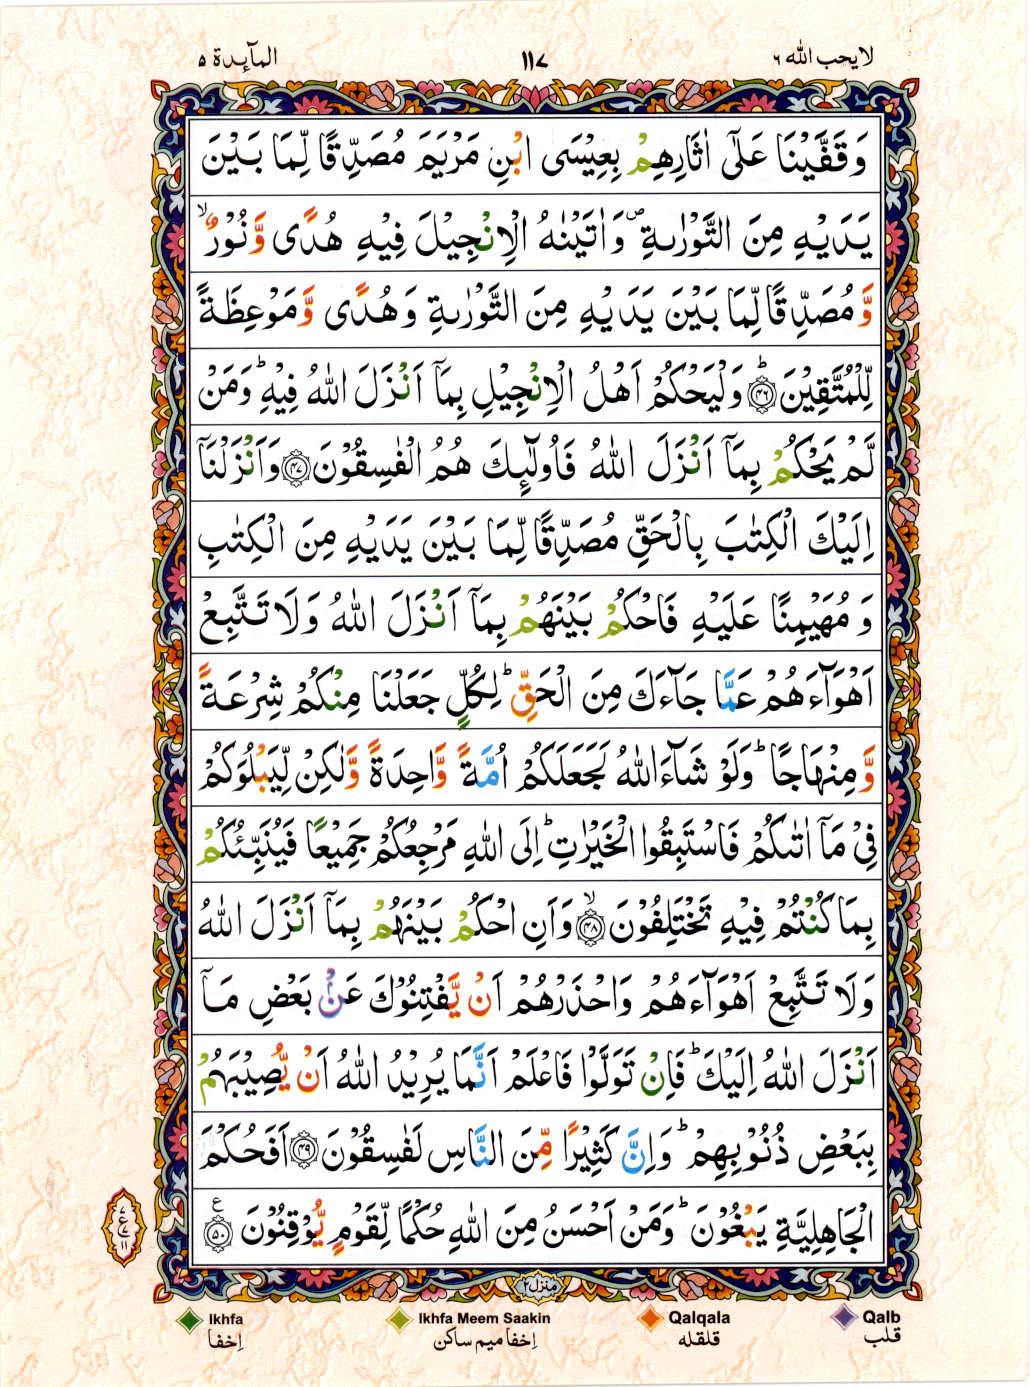 المآىِٕدة ۵
۱۱۷
لا یحب الله ۶
وَقَفَّيْنَا عَلٰٓى اٰثَارِهِمْ بِعِيْسَى ابْنِ مَرْيَمَ مُصَدِّقًا لِّمَا بَيْنَ
يَدَيْهِ مِنَ التَّوْرٰىةِ ۪ وَاٰتَيْنٰهُ الْاِنْجِيْلَ فِيْهِ هُدًى وَّنُوْرٌ ۙ
وَّمُصَدِّقًا لِّمَا بَيْنَ يَدَيْهِ مِنَ التَّوْرٰىةِ وَهُدًى وَّمَوْعِظَةً
لِّلْمُتَّقِيْنَ ؕ ﴿۴۶﴾ وَلْيَحْكُمْ اَهْلُ الْاِنْجِيْلِ بِمَاۤ اَنْزَلَ اللّٰهُ فِيْهِ ؕ وَمَنْ
لَّمْ يَحْكُمْ بِمَاۤ اَنْزَلَ اللّٰهُ فَاُولٰٓئِكَ هُمُ الْفٰسِقُوْنَ ﴿۴۷﴾ وَاَنْزَلْنَاۤ
اِلَيْكَ الْكِتٰبَ بِالْحَقِّ مُصَدِّقًا لِّمَا بَيْنَ يَدَيْهِ مِنَ الْكِتٰبِ
وَمُهَيْمِنًا عَلَيْهِ فَاحْكُمْ بَيْنَهُمْ بِمَاۤ اَنْزَلَ اللّٰهُ وَلَا تَتَّبِعْ
اَهْوَآءَهُمْ عَمَّا جَآءَكَ مِنَ الْحَقِّ ؕ لِكُلٍّ جَعَلْنَا مِنْكُمْ شِرْعَةً
وَّمِنْهَاجًا ؕ وَلَوْ شَآءَ اللّٰهُ لَجَعَلَكُمْ اُمَّةً وَّاحِدَةً وَّلٰكِنْ لِّيَبْلُوَكُمْ
فِيْ مَاۤ اٰتٰىكُمْ فَاسْتَبِقُوا الْخَيْرٰتِ ؕ اِلَى اللّٰهِ مَرْجِعُكُمْ جَمِيْعًا فَيُنَبِّئُكُمْ
بِمَا كُنْتُمْ فِيْهِ تَخْتَلِفُوْنَ ۙ ﴿۴۸﴾ وَاَنِ احْكُمْ بَيْنَهُمْ بِمَاۤ اَنْزَلَ اللّٰهُ
وَلَا تَتَّبِعْ اَهْوَآءَهُمْ وَاحْذَرْهُمْ اَنْ يَّفْتِنُوْكَ عَنْۢ بَعْضِ مَاۤ
اَنْزَلَ اللّٰهُ اِلَيْكَ ؕ فَاِنْ تَوَلَّوْا فَاعْلَمْ اَنَّمَا يُرِيْدُ اللّٰهُ اَنْ يُّصِيْبَهُمْ
بِبَعْضِ ذُنُوْبِهِمْ ؕ وَاِنَّ كَثِيْرًا مِّنَ النَّاسِ لَفٰسِقُوْنَ ﴿۴۹﴾ اَفَحُكْمَ
الْجَاهِلِيَّةِ يَبْغُوْنَ ؕ وَمَنْ اَحْسَنُ مِنَ اللّٰهِ حُكْمًا لِّقَوْمٍ يُّوْقِنُوْنَ ﴿۵۰﴾ ع
۷
ع ۷
۱۱
منزل ۲
Ikhfa
اِخفا
Ikhfa Meem Saakin
اِخفا میم ساکن
Qalqala
قلقله
Qalb
قلب